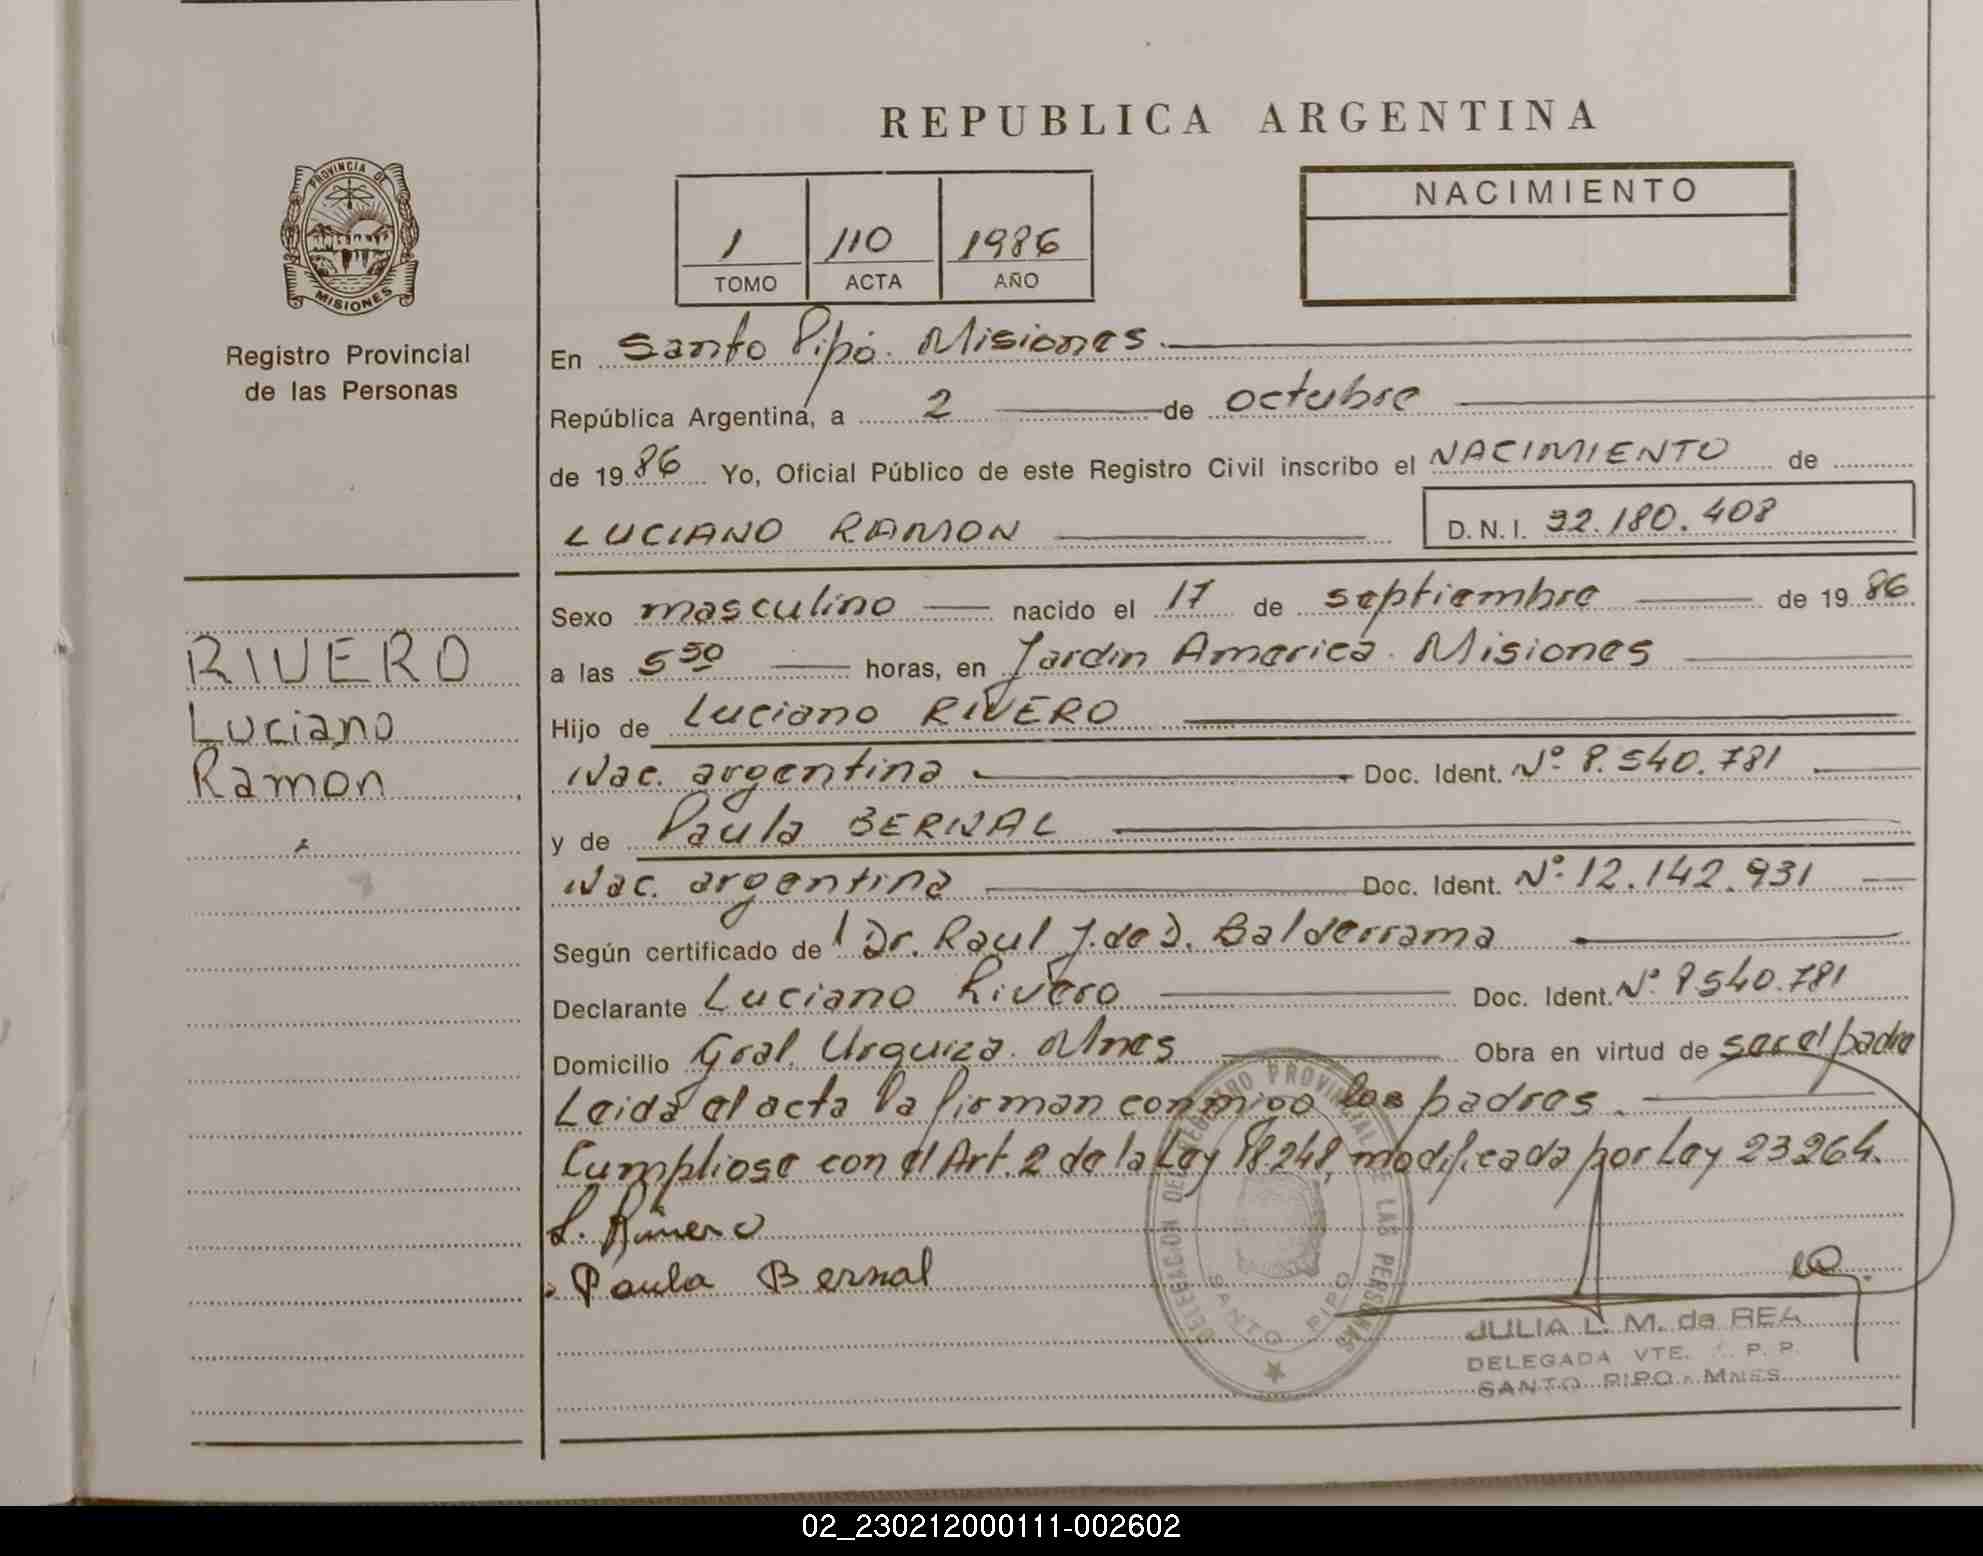 REPUBLICA ARGENTINA
PROVINCIA DE
MISIONES
Registro Provincial
de las Personas
1 110 1986
TOMO ACTA AÑO
NACIMIENTO
En Santo Pipó. Misiones.
República Argentina, a 2 de octubre
de 1986 Yo, Oficial Público de este Registro Civil inscribo el NACIMIENTO de
LUCIANO RAMON D.N.I. 32.180.408
RIVERO
Luciano
Ramon
Sexo masculino nacido el 17 de septiembre de 1986
a las 5 50 horas, en Jardin America. Misiones
Hijo de Luciano RIVERO
Nac. argentina Doc. Ident. Nº 8.540.781
y de Paula BERNAL
Nac. argentina Doc. Ident. Nº 12.142.931
Según certificado de Dr. Raul J. de D. Balderrama
Declarante Luciano Rivero Doc. Ident. Nº 8540.781
Domicilio Gral. Urquiza. Mnes Obra en virtud de ser el padre
Leida el acta la firman conmigo los padres.
Cumpliose con el Art. 2 de la Ley 18248, modificada por Ley 23264.
L. Rivero
Paula Bernal
DELEGACION DEL REGISTRO PROVINCIAL DE LAS PERSONAS
SANTO PIPO
JULIA L. M. de REA
DELEGADA VTE. P. P.
SANTO PIPO - MNES
02_230212000111-002602